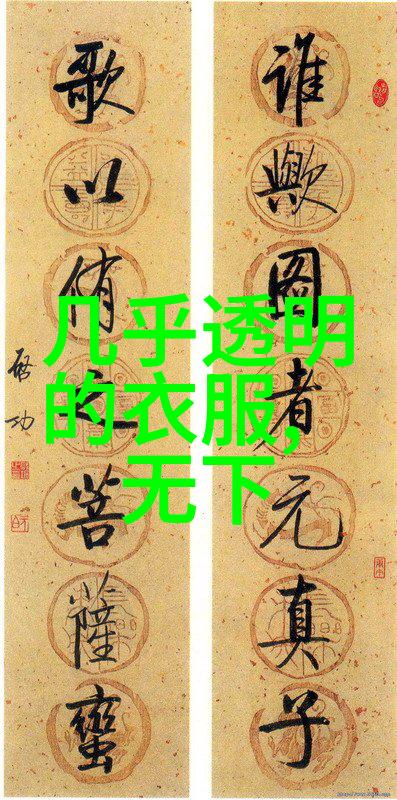 谁欤图者元真子
歌以侑之菩萨蛮
启功
几乎透明
的衣服,
无下